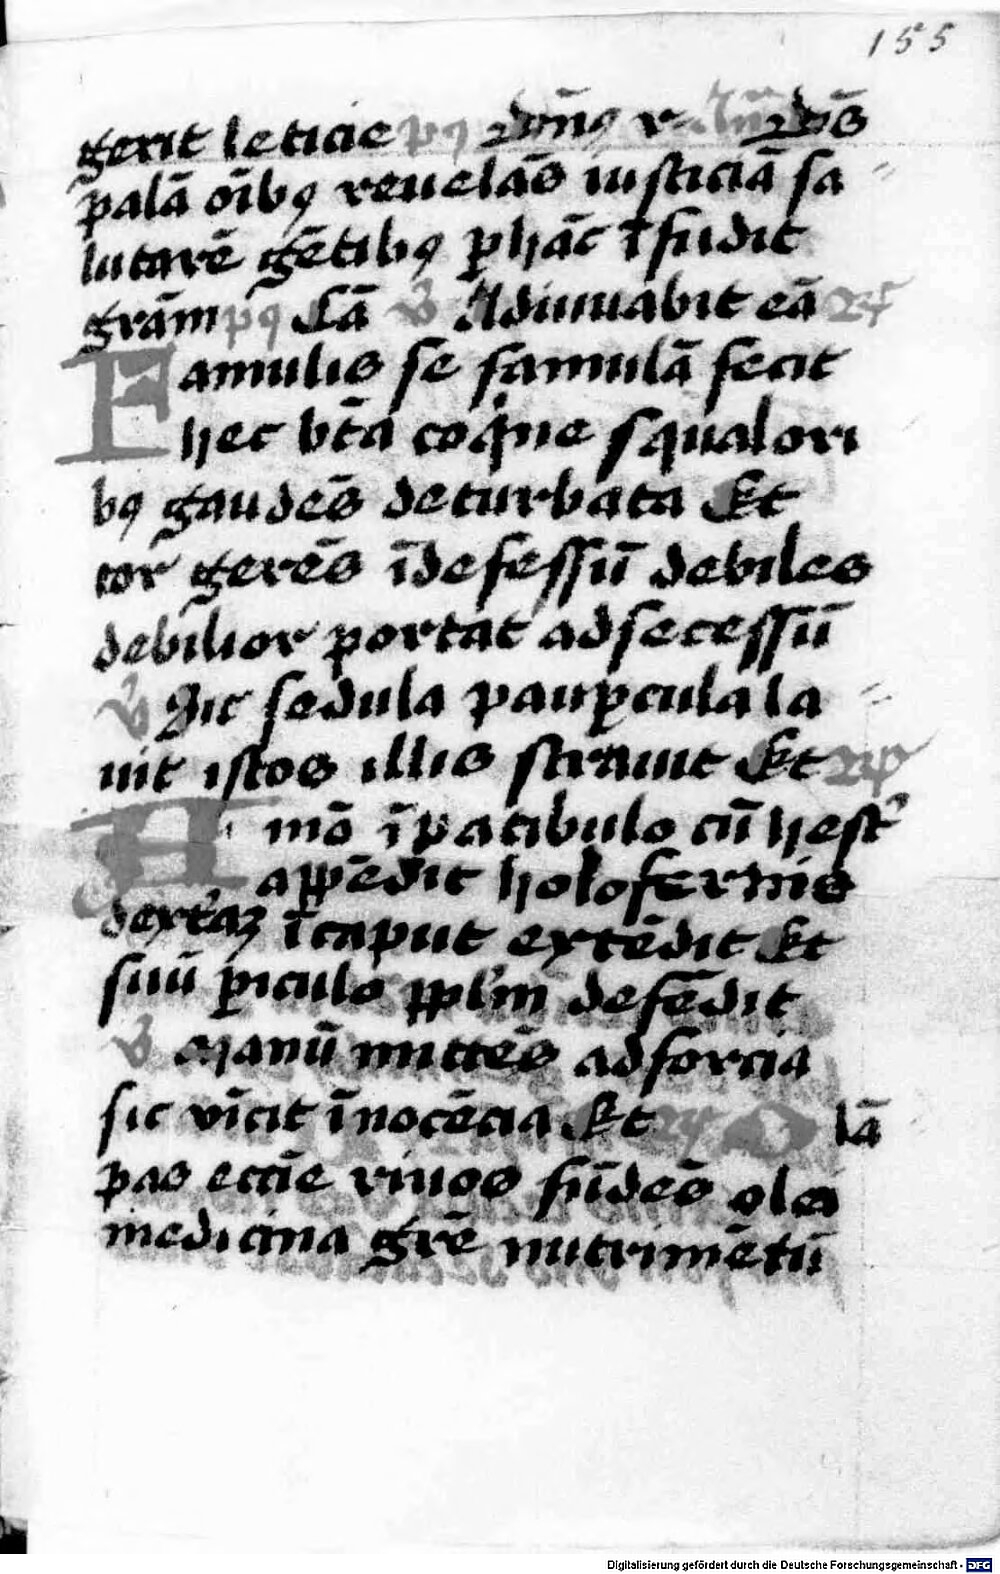 155
gerit leticie pꝰ dn̄ꝯ r dn̄s
palā oībꝯ reuelās iusticiā sa
lutarē gētibꝯ ꝑ hāc īfudit
grām pꝯ Cā ℣ Adiuuabit eā ℟
Famulis se famulā fecit
hec bt̄a coq̄ne squalori
bꝯ gaudēs deturbata Et
cor gerēs īdefessū debiles
debilior portat ad secessū
℣ Hic sedula pauꝑcula la
uit istos illis strauit Et ℟
Hamō ī patibulo cū hest
appēdit holofernis
dextꝛaꝫ ī caput extēdit Et
suū ꝑiculo pplm̄ defēdit
℣ Manū mittēs ad forcia
sic vīcit īnocēcia Et ℟ lā
pas eccīe riuos fūdēs olei
medicina grē nutrimētū
Digitalisierung gefördert durch die Deutsche Forschungsgemeinschaft - DFG